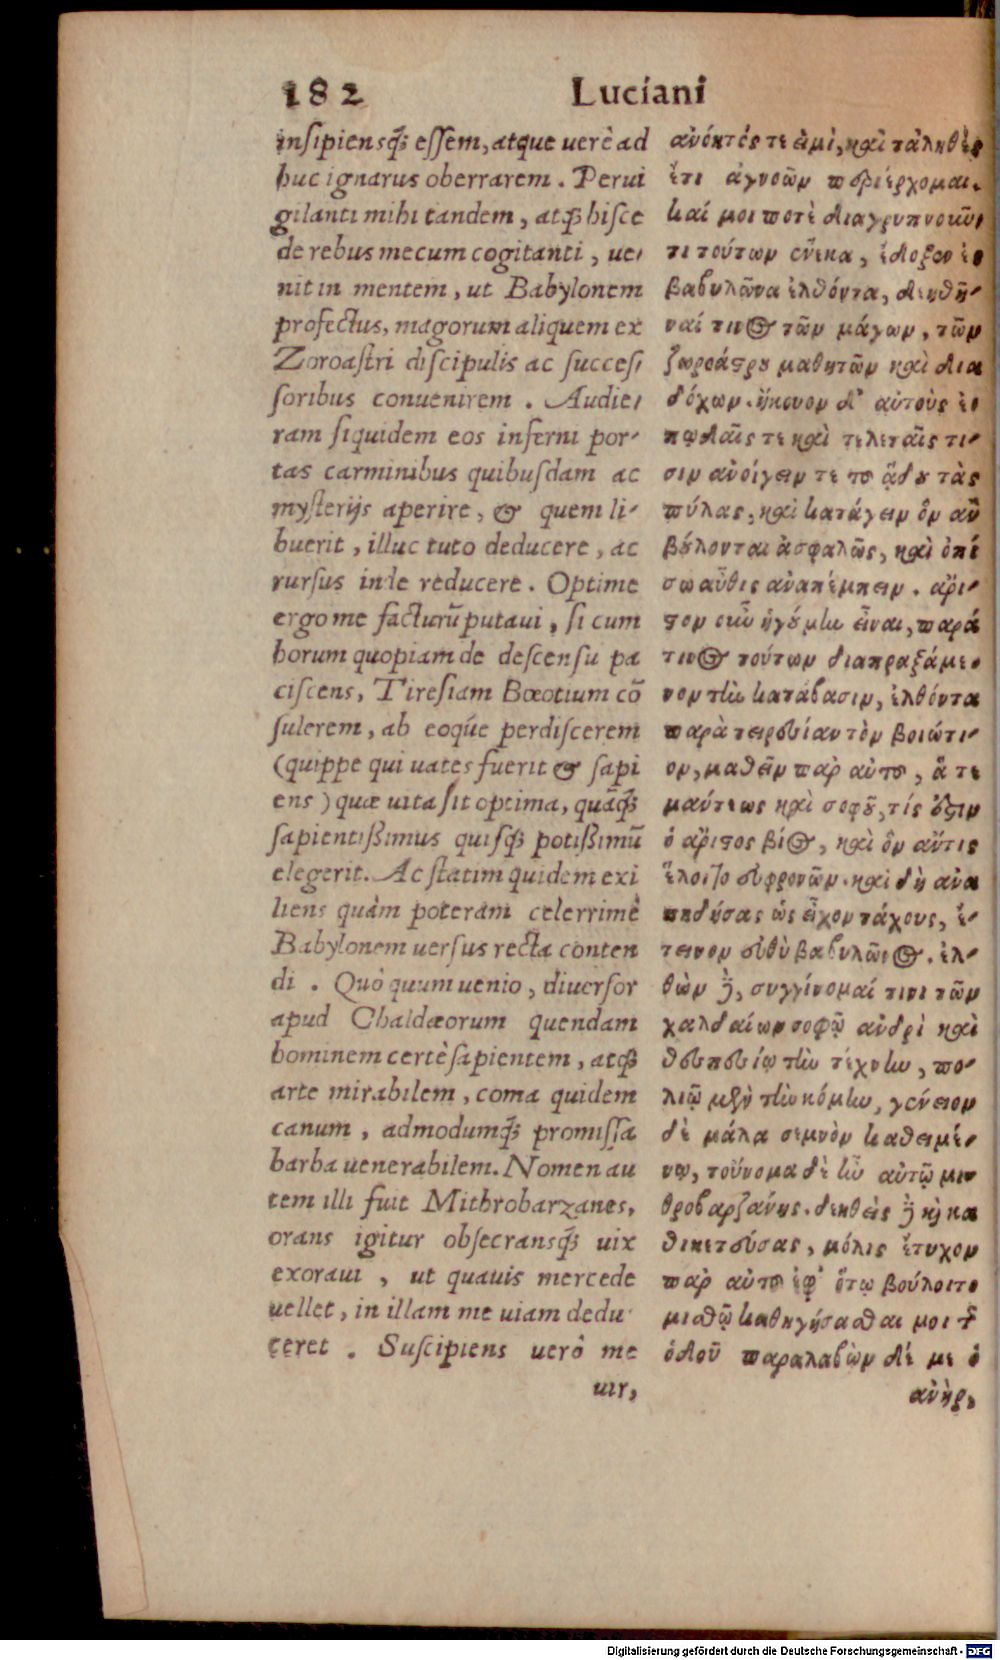 182 Luciani
insipiensq́; essem, atque uerè ad
huc ignarus oberrarem. Perui
gilanti mihi tandem, atq́; hisce
de rebus mecum cogitanti, ue-
nit in mentem, ut Babylonem
profectus, magorum aliquem ex
Zoroastri discipulis ac succes-
soribus conuenirem. Audie-
ram siquidem eos inferni por-
tas carminibus quibusdam ac
mysterijs aperire, & quem li-
buerit, illuc tuto deducere, ac
rursus inde reducere. Optime
ergo me facturũ putaui, si cum
horum quopiam de descensu pa
ciscens, Tiresiam Bœotium cõ
sulerem, ab eoq́ue perdiscerem
(quippe qui uates fuerit & sapi
ens) quæ uita sit optima, quãq́;
sapientißimus quisq́; potißimũ
elegerit. Ac statim quidem exi
liens quàm poteram celerrimè
Babylonem uersus recta conten
di. Quò quum uenio, diuersor
apud Chaldæorum quendam
hominem certè sapientem, atq́;
arte mirabilem, coma quidem
canum, admodumq́; promissa
barba uenerabilem. Nomen au
tem illi fuit Mithrobarzanes,
orans igitur obsecransq́; uix
exoraui, ut quauis mercede
uellet, in illam me uiam dedu
ceret. Suscipiens uerò me
uir,
ἀνόητός τε εἰμὶ, καὶ τἀληθὲς
ἔτι ἀγνοῶν περιέρχομαι.
καί μοι ποτὲ διαγρυπνοῦν-
τι τούτων ἕνεκα, ἔδοξεν ἐς
βαβυλῶνα ἐλθόντα, δεηθῆ-
ναί τινος τῶν μάγων, τῶν
ζωροάστρου μαθητῶν καὶ δια
δόχων. ἤκουον δ' αὐτοὺς ἐπ
πῳδαῖς τε καὶ τελεταῖς τι-
σιν ἀνοίγειν τε τοῦ ᾅδου τὰς
πύλας, καὶ κατάγειν ὃν ἂν
βούλονται ἀσφαλῶς, καὶ ὀπί
σω αὖθις ἀναπέμπειν. ἄρι-
στον οὖν ἡγούμην εἶναι, παρά
τινος τούτων διαπραξάμε-
νον τὴν κατάβασιν, ἐλθόντα
παρὰ τειρεσίαν τὸν βοιώτι-
ον, μαθεῖν παρ αὐτοῦ, ἅ τε
μάντεως καὶ σοφοῦ, τίς ἐστιν
ὁ ἄριστος βίος, καὶ ὃν ἄν τις
ἕλοιτο εὐφρονῶν. καὶ δὴ ἀνα
πηδήσας ὡς εἶχον τάχους, ἔ-
τεινον εὐθὺ βαβυλῶνος. ἐλ-
θὼν δὲ, συγγίνομαί τινι τῶν
χαλδαίων σοφῷ ἀνδρὶ καὶ
θεσπεσίῳ τὴν τέχνην, πο-
λιῷ μὲν τὴν κόμην, γένειον
δὲ μάλα σεμνὸν καθειμέ-
νῳ, τοὔνομα δὲ ἦν αὐτῷ μι
θροβαρζάνης. δεηθεὶς δὲ καὶ κα
θικετεύσας, μόλις ἔτυχον
παρ αὐτοῦ ἐφ' ὅτῳ βούλοιτο
μισθῷ καθηγήσασθαι μοι τῆς
ὁδοῦ παραλαβὼν δέ με ὁ
ἀνὴρ,
Digitalisierung gefördert durch die Deutsche Forschungsgemeinschaft - DFG